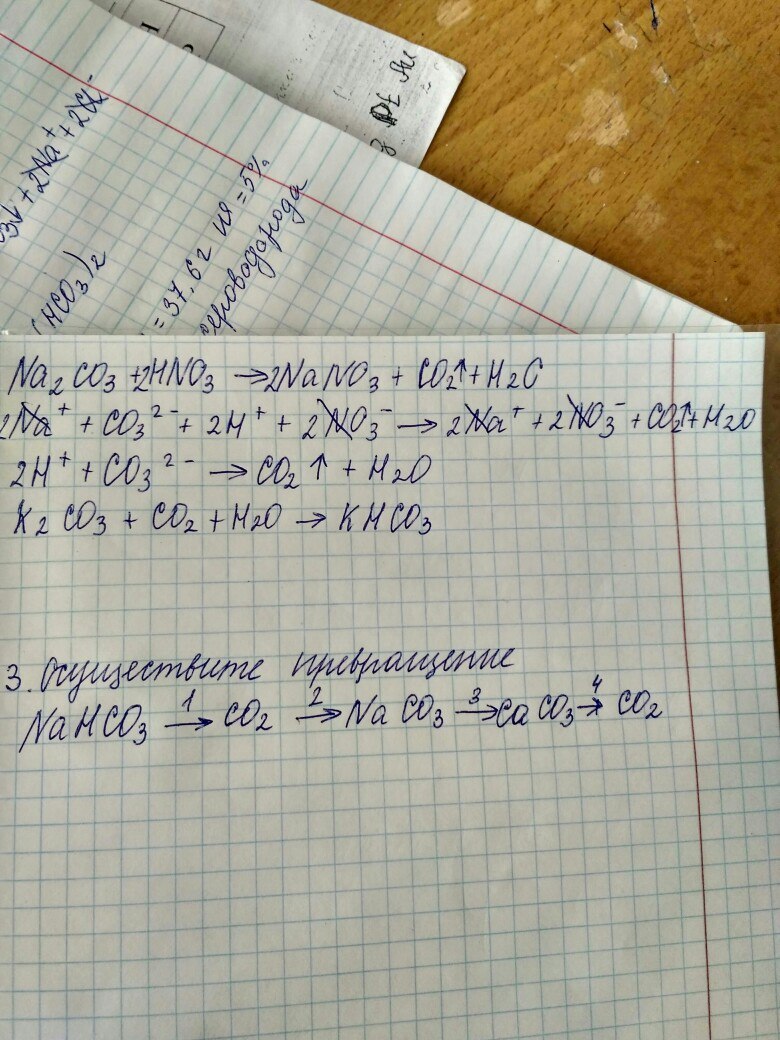 Pt Au
3↓ + 2Na⁺ + 2Cl⁻
HCO₃)₂
= 37,6 г ия = 5%
сероводорода
Na₂CO₃ + 2HNO₃ → 2NaNO₃ + CO₂↑ + H₂O
2Na⁺ + CO₃²⁻ + 2H⁺ + 2NO₃⁻ → 2Na⁺ + 2NO₃⁻ + CO₂↑ + H₂O
2H⁺ + CO₃²⁻ → CO₂↑ + H₂O
K₂CO₃ + CO₂ + H₂O → KHCO₃
3. Осуществите превращение
NaHCO₃ →¹ CO₂ →² NaCO₃ →³ CaCO₃ →⁴ CO₂